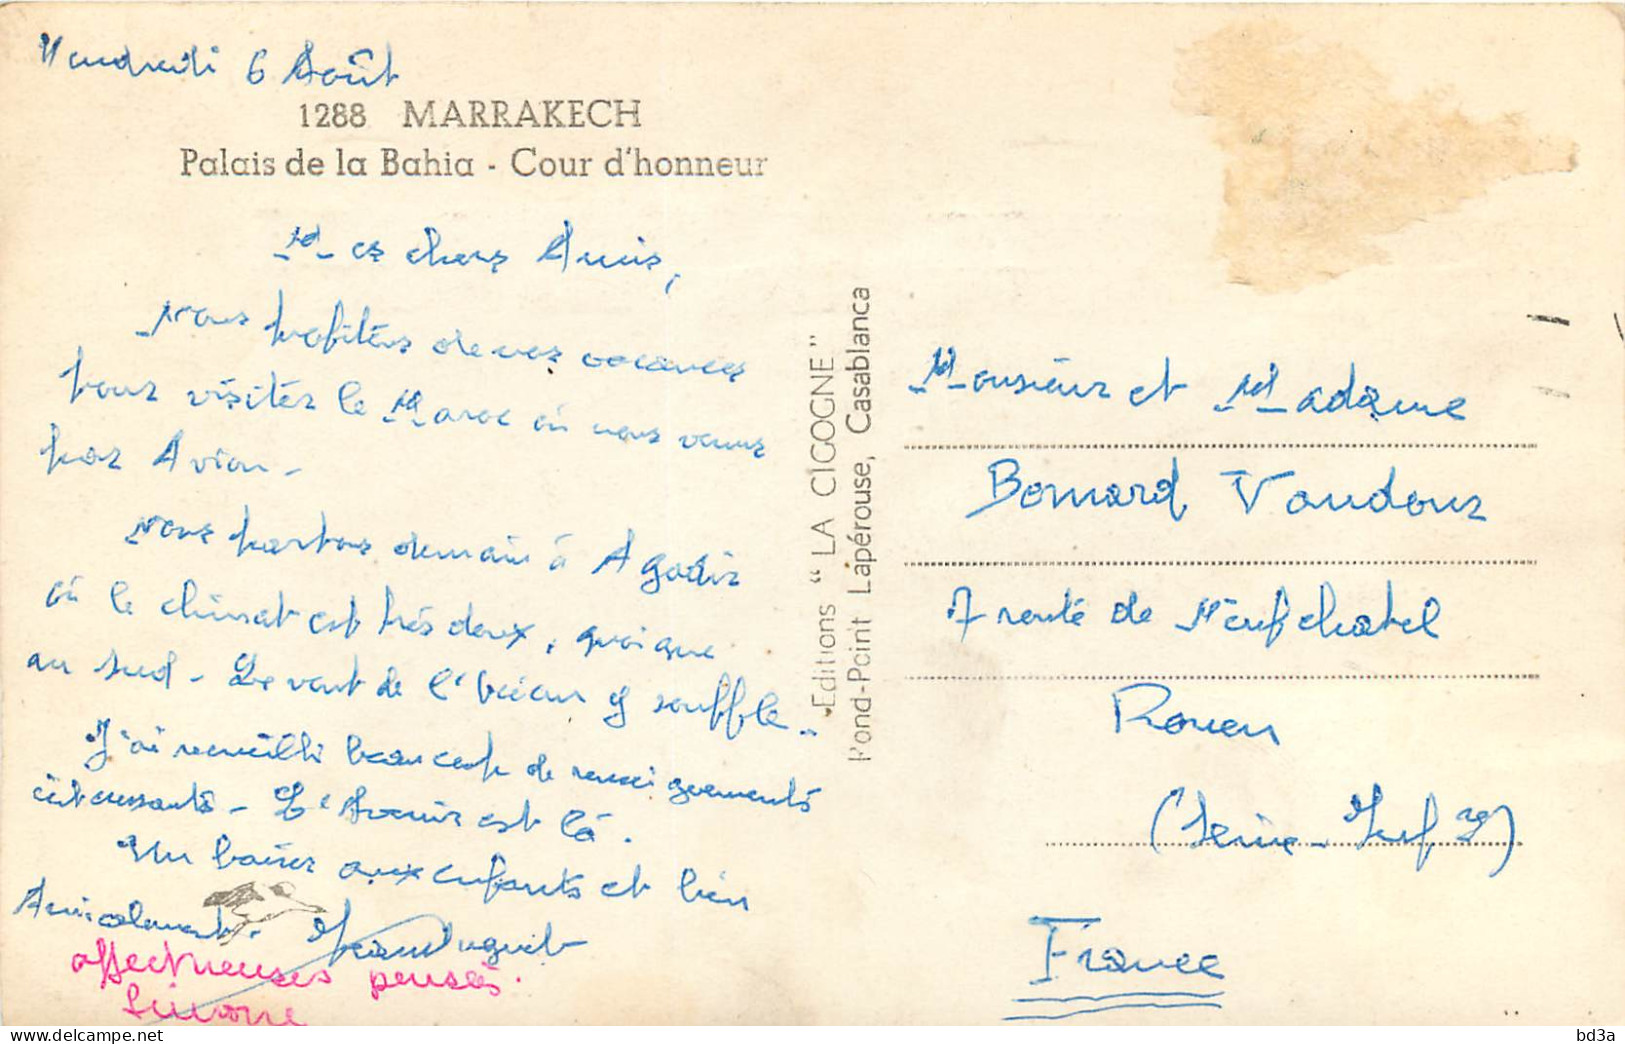 Vendredi 6 Août
1288 MARRAKECH
Palais de la Bahia - Cour d'honneur
Mes chers Amis,
Nous profitons de nos vacances
pour visiter le Maroc où nous venus
par Avion -
Nous partons demain à Agadir
où le climat est très doux, quoique
au sud - Le vent de l'Océan y souffle -
J'ai recueilli beaucoup de renseignements
intéressants - L'Avenir est là.
Un baiser aux enfants et bien
Amicalement.
affectueuses pensées.
Simone
Editions "LA CIGOGNE"
Rond-Point Lapérouse, Casablanca
Monsieur et Madame
Bernard Vaudour
7 route de Neufchatel
Rouen
(Seine-Infre)
France
bd3a